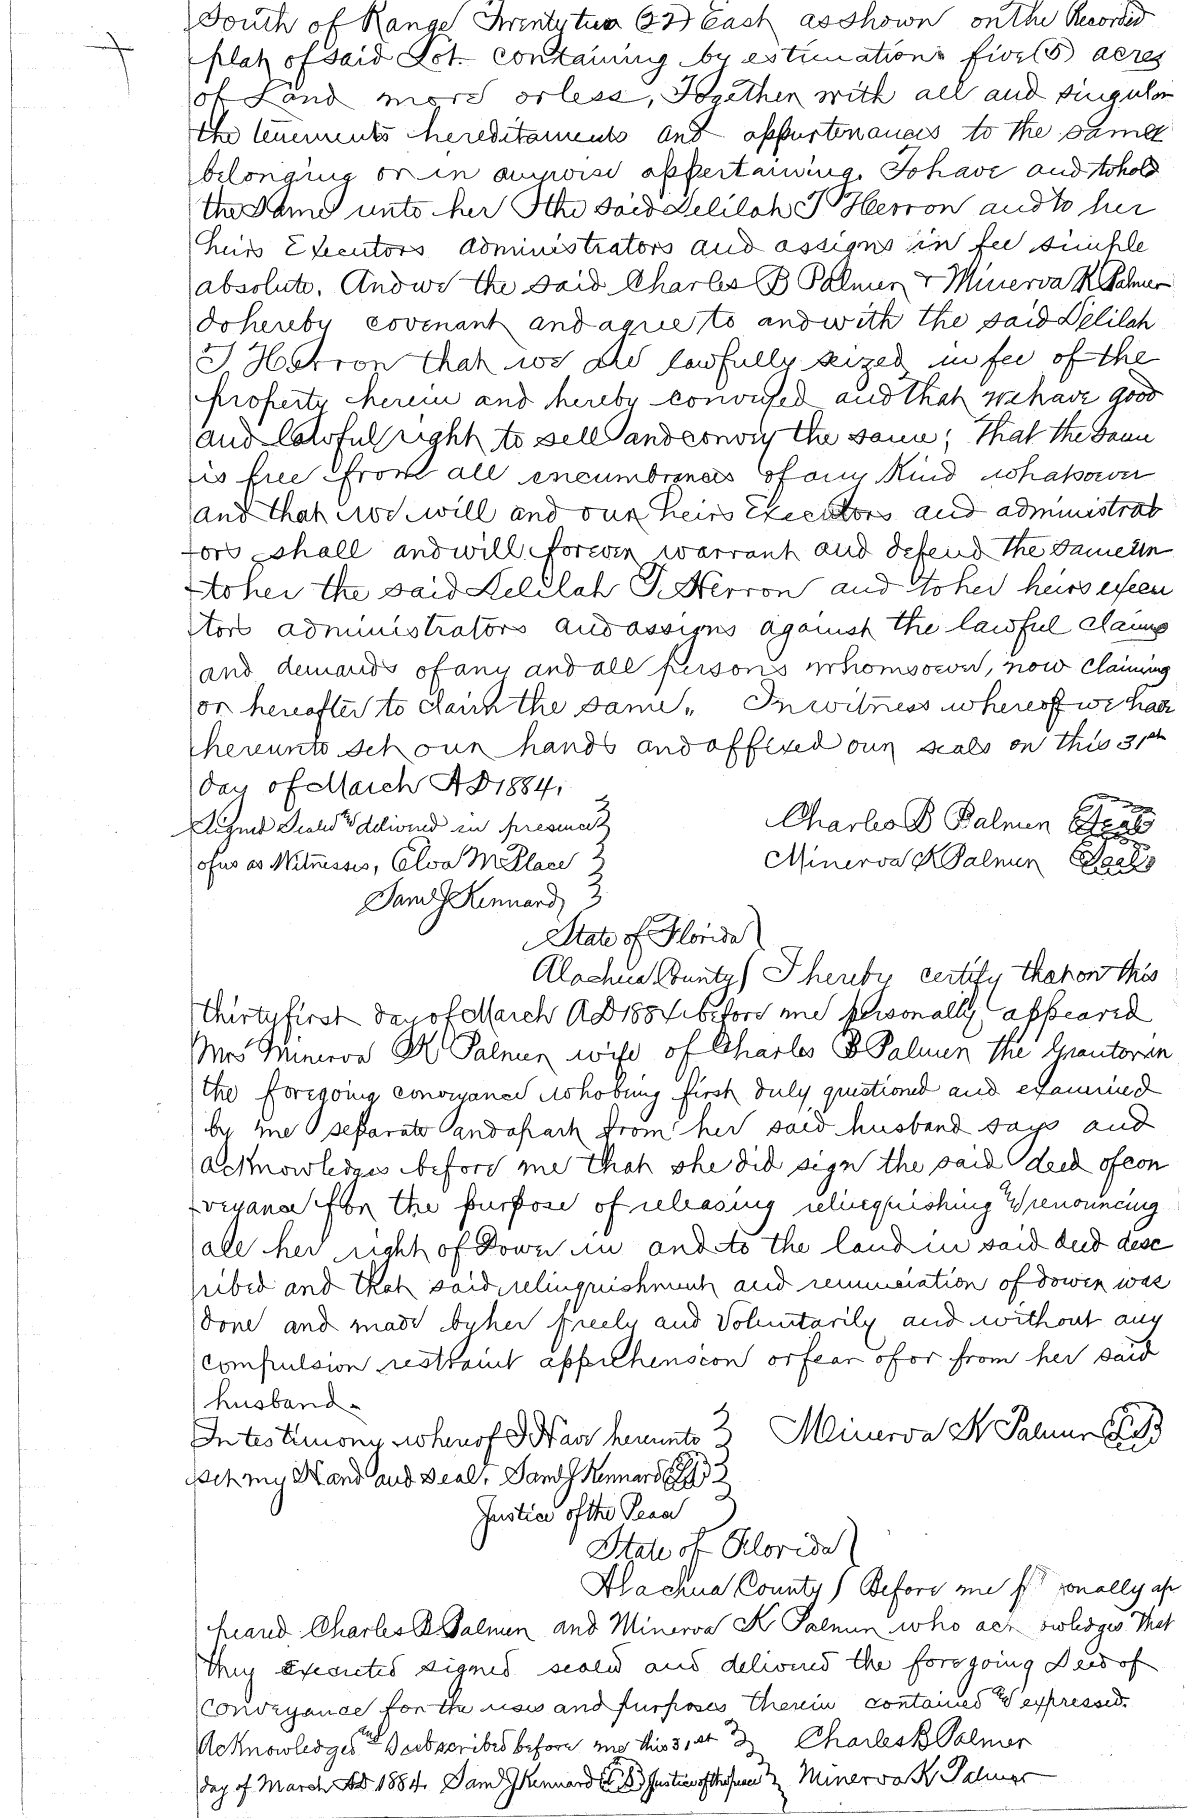 South of Range Twenty two (22) East as shown on the Recorded
plat of said Lot. containing by estimation five (5) acres
of Land more or less, Together with all and singular
the tenements hereditaments and appurtenances to the same
belonging or in anywise appertaining. To have and to hold
the same unto her the said Delilah T Herron and to her
heirs Executors administrators and assigns in fee simple
absolute. And we the said Charles B Palmer & Minerva K Palmer
do hereby covenant and agree to and with the said Delilah
T Herron that we are lawfully seized in fee of the
property herein and hereby conveyed and that we have good
and lawful right to sell and convey the same; That the same
is free from all encumbrances of any Kind whatsoever
and that we will and our heirs Executors and administrat
-ors shall and will forever warrant and defend the same un
-to her the said Delilah T. Herron and to her heirs execu
tors administrators and assigns against the lawful claims
and demands of any and all persons whomsoever, now claiming
or hereafter to claim the same. In witness whereof we have
hereunto set our hands and affixed our seals on this 31st
day of March AD 1884.
Signed Sealed and delivered in presence Charles B Palmer Seal
of us as Witnesses, Elva M Place Minerva K Palmer Seal
Saml J Kennard
State of Florida
Alachua County I hereby certify that on this
thirty first day of March AD 1884 before me personally appeared
Mrs Minerva K Palmer wife of Charles B Palmer the Grantor in
the foregoing conveyance who being first duly questioned and examined
by me separate and apart from her said husband says and
acknowledges before me that she did sign the said deed of con
-veyance for the purpose of releasing relinequishing and renouncing
all her right of Dower in and to the land in said deed desc
ribed and that said relinquishment and renunciation of dower was
done and made by her freely and Voluntarily and without any
compulsion restraint apprehension or fear of or from her said
husband-
In testimony whereof I Have hereunto Minerva K Palmer LS
set my Hand and seal. Saml J Kennard LS
Justice of the Peace
State of Florida
Alachua County Before me p onally ap
peared Charles B Palmer and Minerva K Palmer who ack owledges That
they Executed signed sealed and delivered the foregoing Deed of
conveyance for the uses and purposes therein contained and expressed.
Acknowledged and Subscribed before me this 31st Charles B Palmer
day of March AD 1884. Saml J Kennard (LS) Justice of the peace Minerva K Palmer